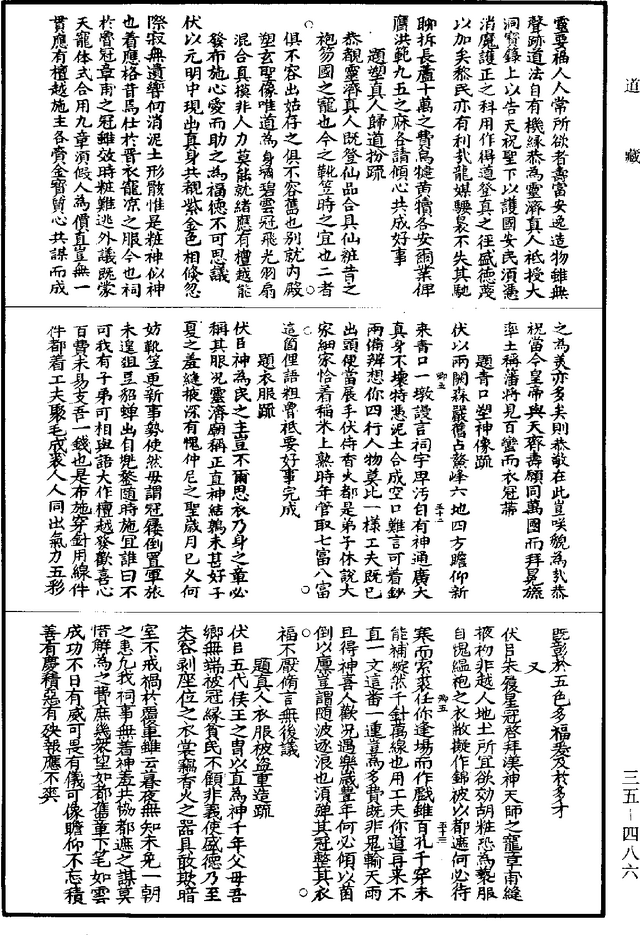 道藏
靈要福人人常所欲者壽富安逸造物雖無
聲跡道法自有機緣恭為靈濟真人祇授大
洞寶籙上以告天祝聖下以護國安民須憑
消魔護正之科用作得道登真之徑盛德蔑
以加矣黎民亦有利哉龍媒騕褭不失其馳
聊拆長蘆十萬之費烏犍黃犢各安爾業俾
膺洪範九五之疇各請傾心共成好事
題塑真人歸道扮疏
恭覩靈濟真人既登仙品合具仙粧昔之
袍笏國之寵也今之靴笠時之宜也二者
俱不容出姑存之俱不容舊也別就內殿
塑玄聖像唯道為身璃碧雲冠飛光羽扇
混合真模非人力莫能就緒應有檀越能
發布施心愛而助之為福德不可思議
伏以元明中現出真身共覩紫金色相倏忽
際寂無遺響何消泥土形骸惟是粧神似神
也着應格昔馬仕於晉衣龍凉之服今也祠
於魯冠章甫之冠雖效時粧難逃外議既蒙
天寵体式合用九章須假人為價直豈無一
貫應有檀越施主各賫金寳質心共謀而成
之為美亦多矣則恭敬在此豈咲貌為哉恭
祝當今皇帝與天齊壽願同萬國而拜冕旒
率土稱藩將見百蠻而衣冠帶
題青口塑神像疏
伏以兩闕森嚴舊占鰲峰六地四方瞻仰新
來青口一墩謾言祠宇卑污自有神通廣大
真身不壞特憑泥土合成空口難言可着鈔
兩備辨想你四行人物莫比一樣工夫既已
出頭便當展手伏侍香火都是弟子休說大
家細家恰着稻米上熟時年管取七富八富
這箇俚語粗曾祇要好事完成
題衣服疏
伏日神為民之主豈不爾思衣乃身之章必
稱其服况靈濟廟稱正直神結鶉未甚好子
夏之羞縫掖深有愧仲尼之聖歲月已久何
妨靴笠更新事勢使然毋謂冠屨倒置軍旅
未遑狙豆貂蟬出自兜鍪隨時施宜誰曰不
可我有子弟可相與語大作檀越發歡喜心
百費未易支吾一錢也是布施穿針用線件
件都着工夫聚毛成裘人人同出氣力五彩
既彰於五色多福爰及於多才
又
伏日朱履星冠啓拜漢神天師之寵章甫縫
掖初非越人地土所宜欲効胡粧恐為褻服
自愧緼袍之衣敢擬作錦被以都遮何必待
寒而索裘任你逢場而作戲雖百孔千穿未
能補綻然千針萬線也用工夫你道再來不
直一文這番一運豈為多費既非鬼輸天雨
且得神喜人歡况遇樂歲豐年何必傾以菌
倒以廩豈謂随波逐浪也須弹其冠整其衣
福不厭脩言無後議
題真人衣服被盜重造疏
伏日五代侯王之胄以直為神千年父毋吾
鄉無端被冠緣貧民不顧非義使盛德乃至
失容剥座位之衣裳竊香火之器具敢欺暗
室不戒禍於覆車雖云暮夜無知未免一朝
之患凡我祠事無着神羞共協都遮之謀莫
惜解為之費庶幾衆望如都舊葷下笔如雲
成功不日有威可畏有儀可像瞻仰不忘積
善有慶積惡有殃報應不爽
三五－四八六